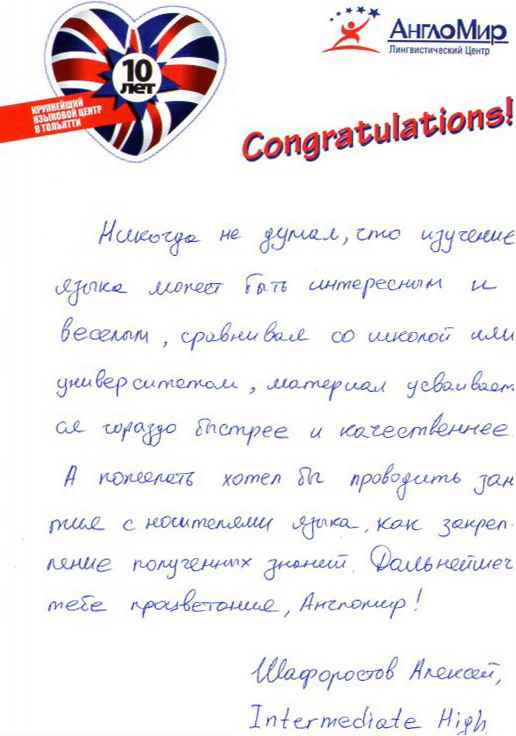 10
ЛЕТ
КРУПНЕЙШИЙ
ЯЗЫКОВОЙ ЦЕНТР
В ТОЛЬЯТТИ
АнглоМир
Лингвистический Центр
Congratulations!
Никогда не думал, что изучение
языка может быть интересным и
веселым, сравнивая со школой или
университетом, материал усваивает
ся гораздо быстрее и качественнее.
А пожелать хотел бы проводить зан
тия с носителями языка, как закреп-
ление полученных знаний. Дальнейшег
тебе процветания, Англомир!
Шафоростов Алексей,
Intermediate High